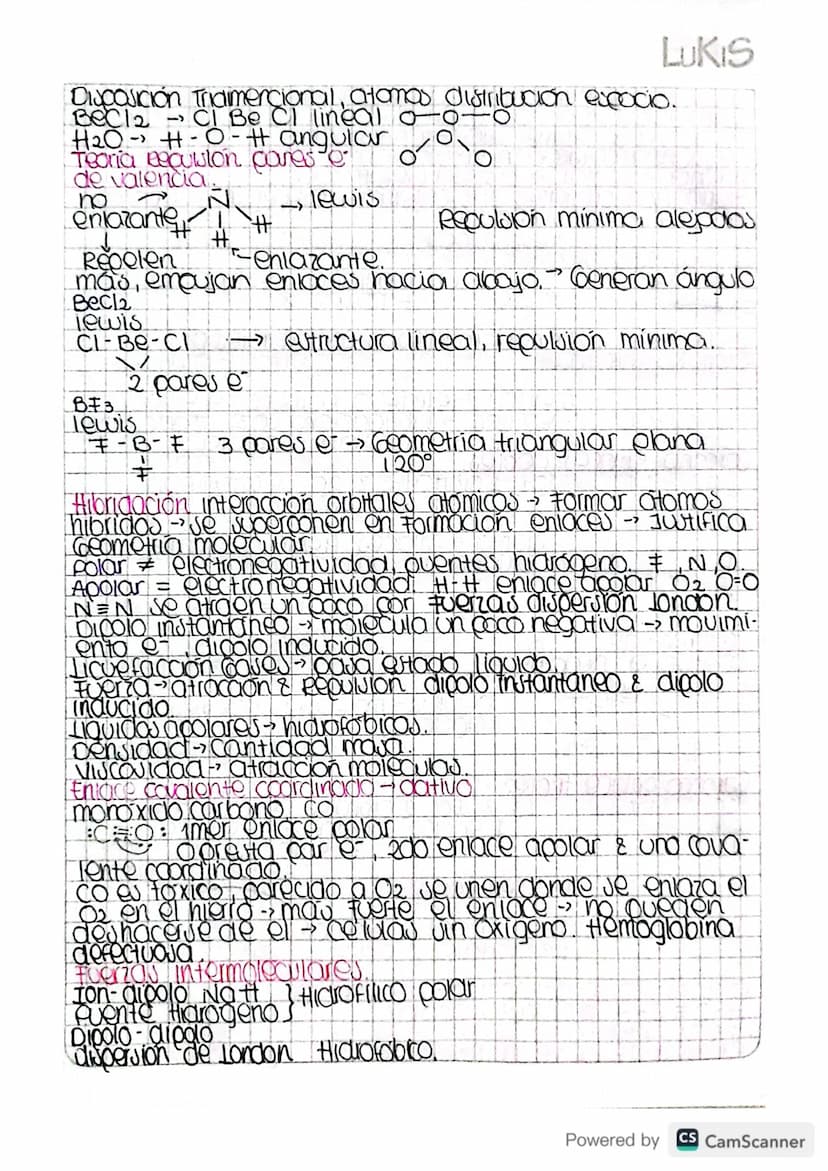 LuKiS
Disposición Tridimercional, atomos distribución espacio.
BeCl2 → Cl Be Cl lineal O-O-O
H2O → H - O - H angular
Teoria Repulsión pares e-
de valencia.
no
enlazante
N
H H H
→ lewis
Repulsión mínima alejados
↓
Repelen
enlazante.
más, empujan enlaces hacia abajo. → Generan ángulo
BeCl2
lewis
Cl-Be-Cl → estructura lineal, repulsión mínima.
2 pares e-
BF3
lewis
F - B - F 3 pares e- → Geometria triangular plana
F 120°
Hibridación interacción orbitales atómicos → Formar átomos
híbridos → se superponen en Formación enlaces → Justifica
Geometría molecular.
Polar ≠ electronegatividad, puentes hidrógeno. F, N, O.
Apolar = electronegatividad. H-H enlace apolar O2 O=O
N≡N se atraen un poco por Fuerzas dispersión London.
Dipolo instantáneo → molécula un poco negativa → movimi-
ento e-, dipolo inducido.
Licuefacción Gases → pasa estado líquido.
Fuerza → atracción & Repulsión dipolo instantaneo & dipolo
inducido.
Liquidos apolares → hidrofóbicos.
Densidad → cantidad masa.
Viscosidad → atracción moléculas.
Enlace covalente coordinado → dativo
monóxido carbono CO
:C≡O: 1mer enlace polar
O presta par e-, 2do enlace apolar & uno cova-
lente coordinado.
CO es tóxico, parecido a O2 se unen donde se enlaza el
O2 en el hierro → más fuerte el enlace → no pueden
deshacerse de el → células sin oxígeno. Hemoglobina
defectuosa.
Fuerzas intermoleculares.
Ion-dipolo NaH } Hidrofílico polar
Puente Hidrógeno
Dipolo-dipolo
dispersión de London Hidrofóbico.
Powered by CS CamScanner